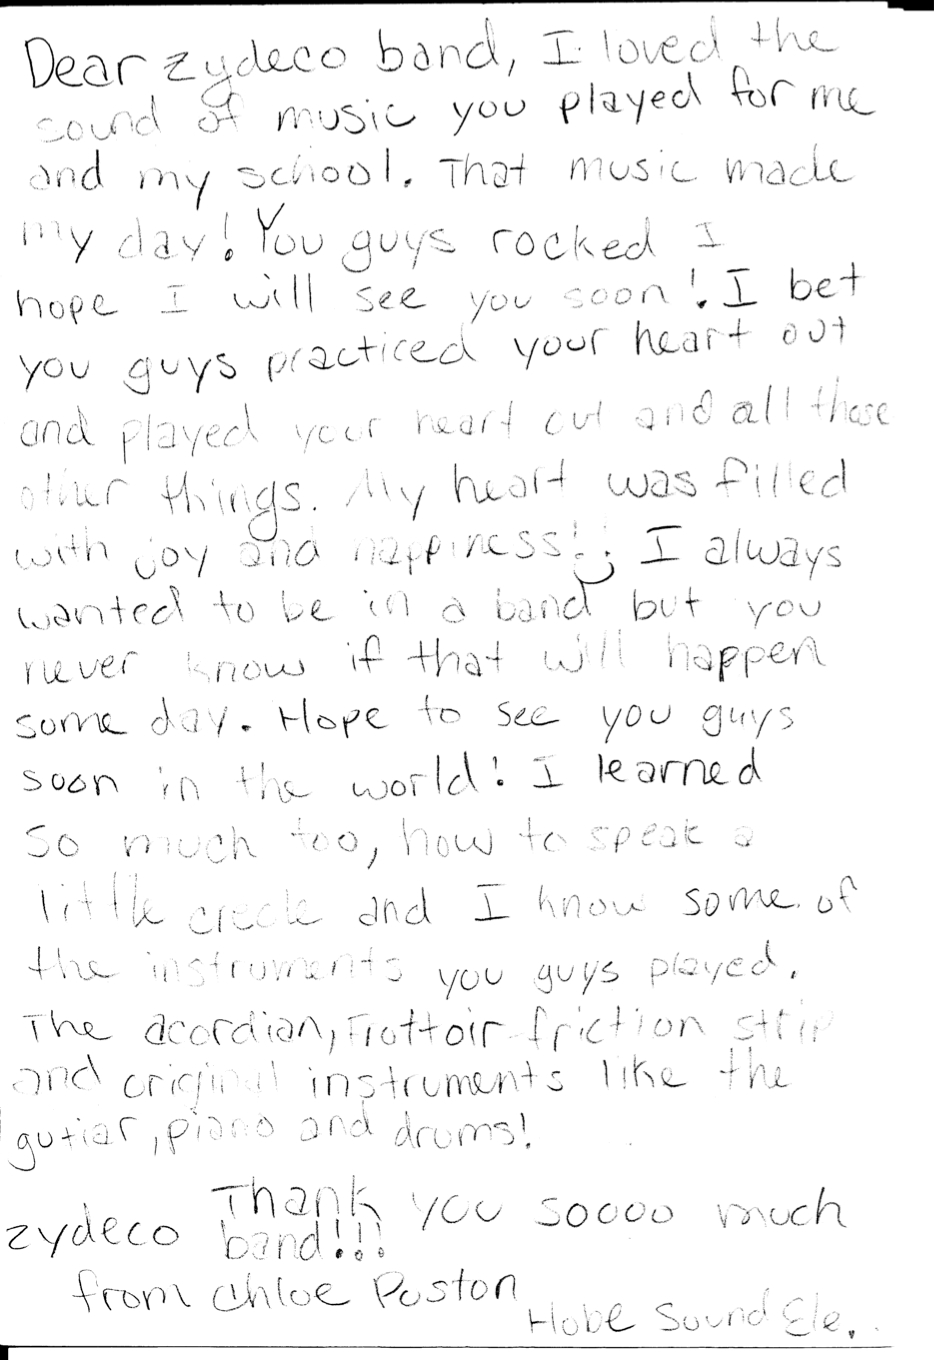 Dear zydeco band, I loved the
sound of music you played for me
and my school. That music made
my day! You guys rocked I
hope I will see you soon! I bet
you guys practiced your heart out
and played your heart out and all those
other things. My heart was filled
with joy and happiness!! :) I always
wanted to be in a band but you
never know if that will happen
some day. Hope to see you guys
soon in the world! I learned
So much too, how to speak a
little creole and I know some of
the instruments you guys played.
The acordian, Frottoir friction strip
and original instruments like the
gutiar, piano and drums!
Thank you soooo much
zydeco band!!!
from Chloe Poston
Hobe Sound Ele.